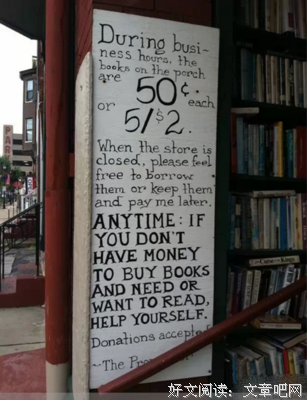 During busi-
ness hours, the
books on the porch
are 50¢ each
or 5/$2.
When the store is
closed, please feel
free to borrow
them or keep them
and pay me later.
ANYTIME: IF
YOU DON'T
HAVE MONEY
TO BUY BOOKS
AND NEED OR
WANT TO READ,
HELP YOURSELF.
Donations accepted
~The
好文阅读:文章吧网